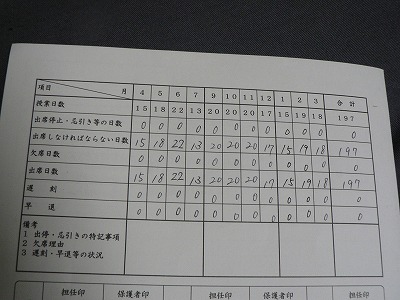 項目 月 4 5 6 7 9 10 11 12 1 2 3 合計
授業日数 15 18 22 13 20 20 20 17 15 19 18 197
出席停止・忌引き等の日数 0 0 0 0 0 0 0 0 0 0 0 0
出席しなければならない日数 15 18 22 13 20 20 20 17 15 19 18 197
欠席日数 0 0 0 0 0 0 0 0 0 0 0 0
出席日数 15 18 22 13 20 20 20 17 15 19 18 197
遅刻 0 0 0 0 0 0 0 0 0 0 0 0
早退 0 0 0 0 0 0 0 0 0 0 0 0
備考
1 出停・忌引きの特記事項
2 欠席理由
3 遅刻・早退等の状況
担任印 保護者印 担任印 保護者印 担任印